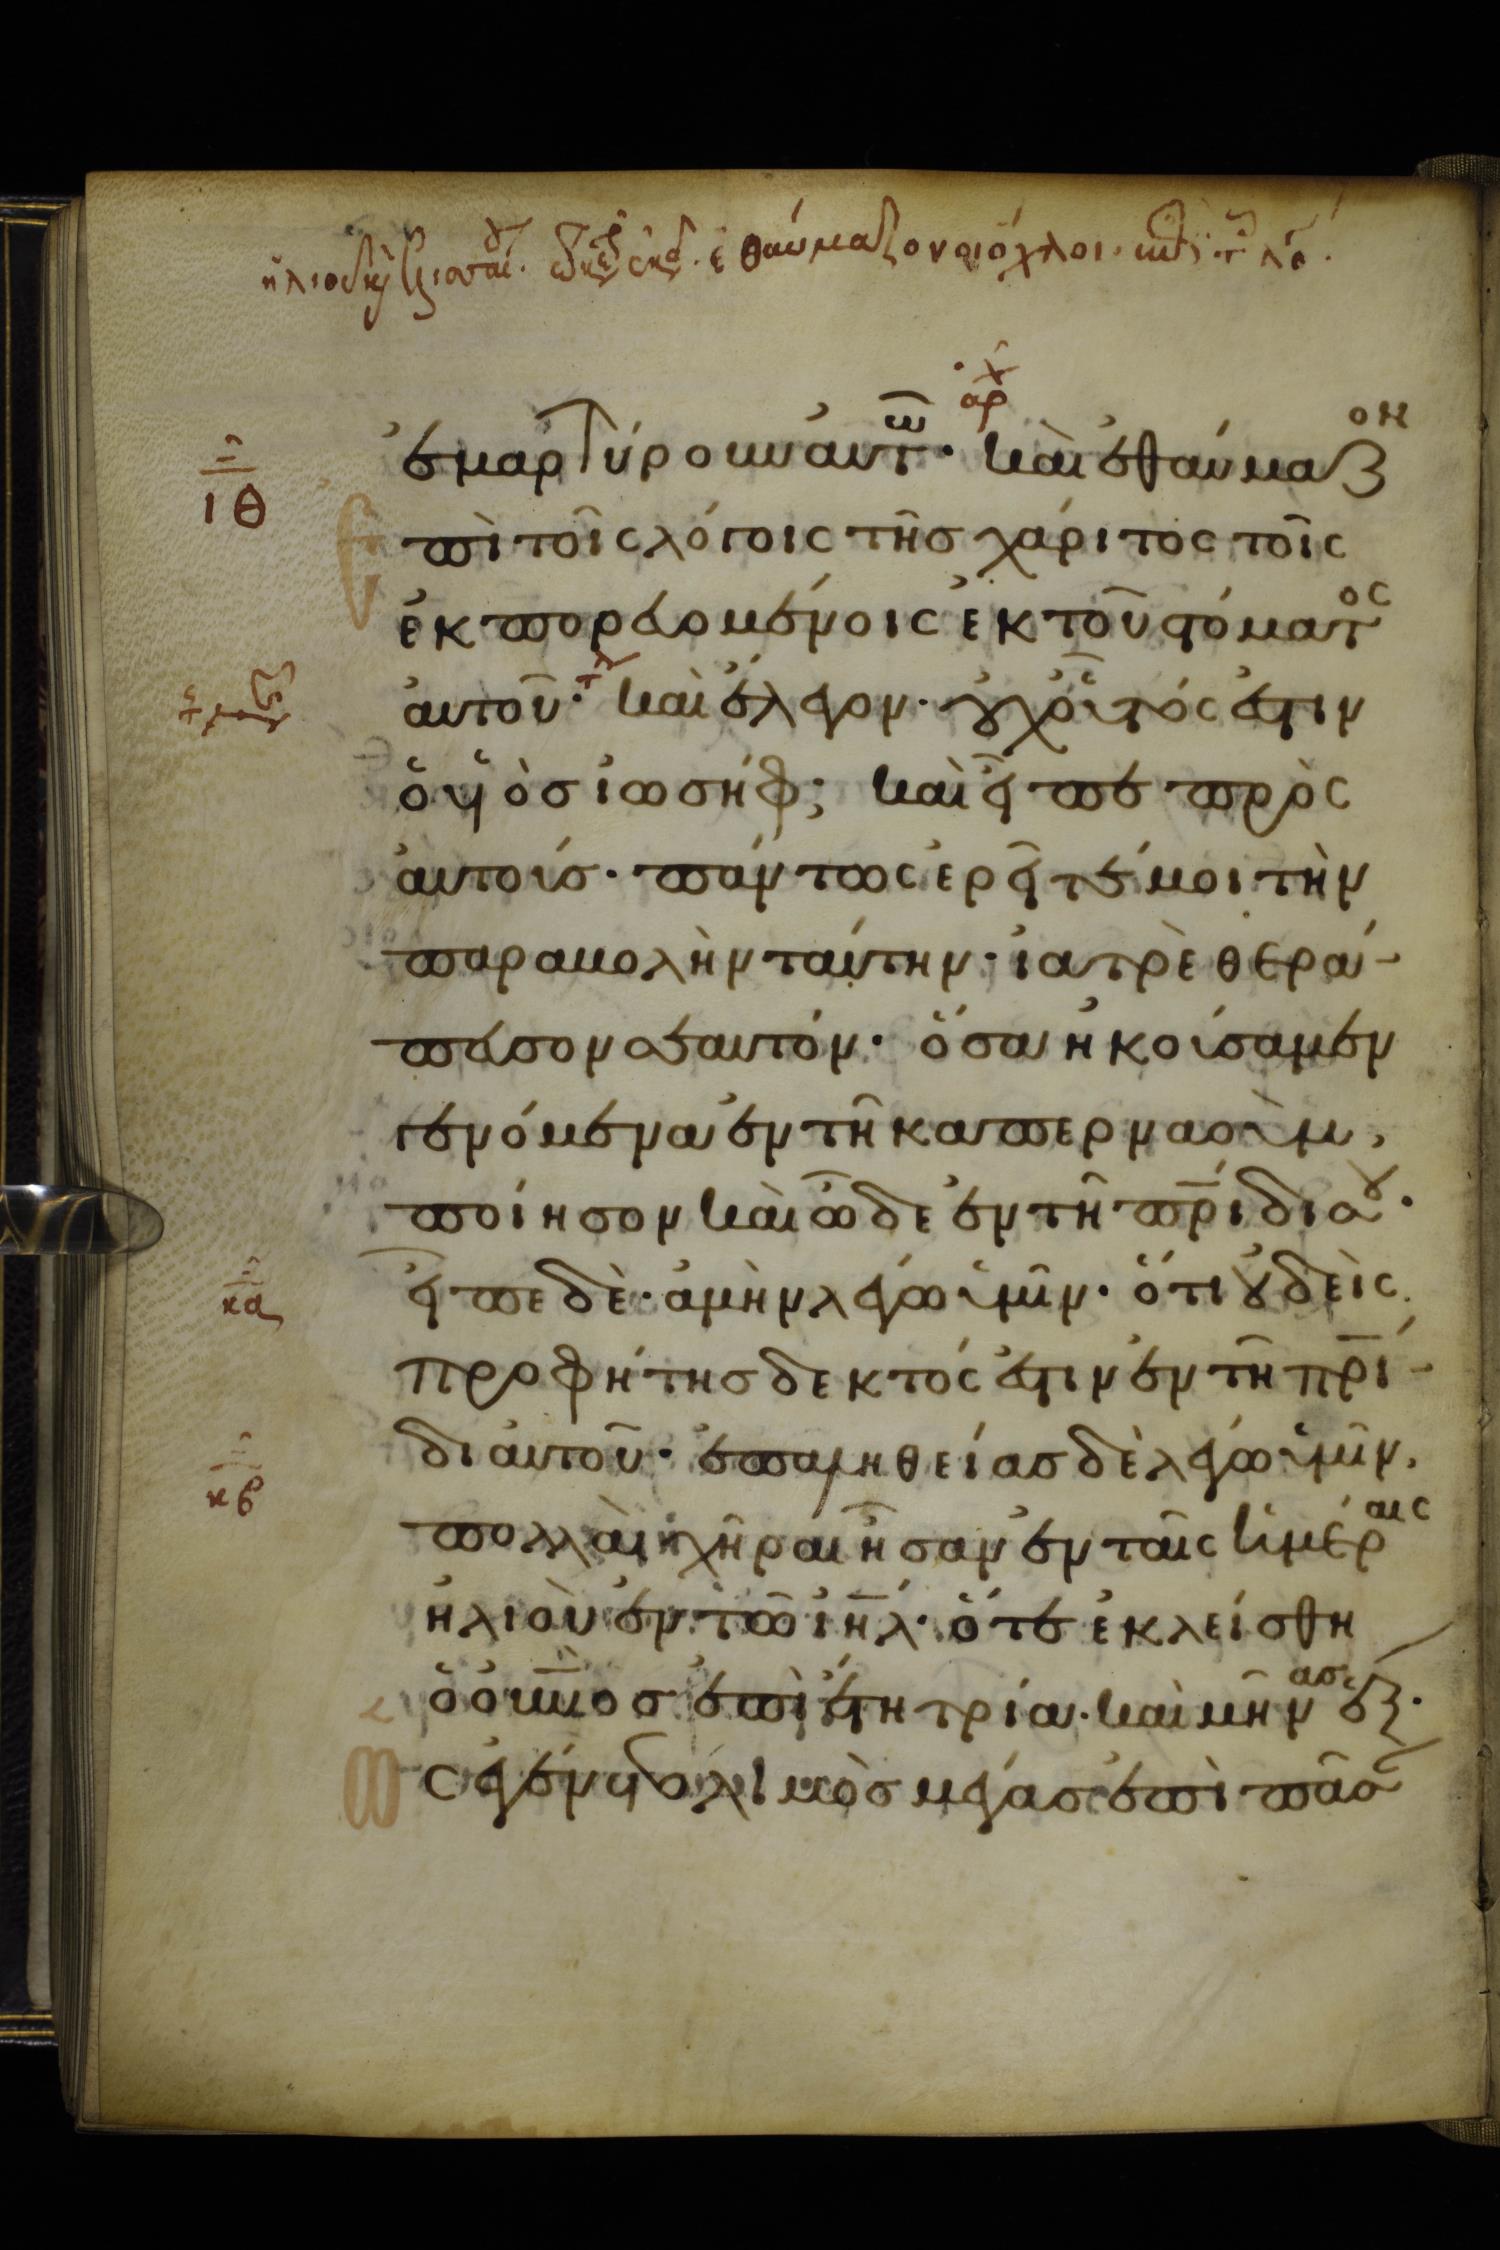 ἐθαύμαζον οἱ ὄχλοι
αρχ
ἐμαρτύρουν αυτῶ· καὶ ἐθαύμαζον
ιθ
ἐπὶ τοῖς λόγοις τῆς χάριτος τοῖς
ἐκπορευομένοις ἐκ τοῦ στόματος
ἀυτοῦ· καὶ ἔλεγον· ὀυχ οὗτός ἐστιν
ὁ υἱὸς ἰωσήφ; καὶ εἶπε πρὸς
ἀυτούς· πάντως ἐρεῖτέ μοι τὴν
παραβολὴν ταύτην· ἰατρὲ θερά-
πευσον σεαυτόν· ὅσα ἠκούσαμεν
γενόμενα ἐν τῆ καπερναοὺμ,
ποίησον καὶ ὧδε ἐν τῆ πρίδι σου·
κα
εἶπε δὲ· ἀμὴν λέγω ὑμῖν· ὅτι ὀυδεὶς
προφήτης δεκτός ἐστιν ἐν τῆ πρί-
κβ
δι ἀυτοῦ· ἐπαληθείας δὲ λέγω ὑμῖν,
πολλαὶ χῆραι ἦσαν ἐν ταῖς ἡμέραις
ἠλιοὺ ἐν τῶ ἰηλ· ὅτε ἐκλείσθη
ὁ ὀυνος ἐπὶ ἔτη τρία· καὶ μῆνας ἕξ·
ὡς ἐγένετο λιμὸς μέγας ἐπὶ πᾶσ